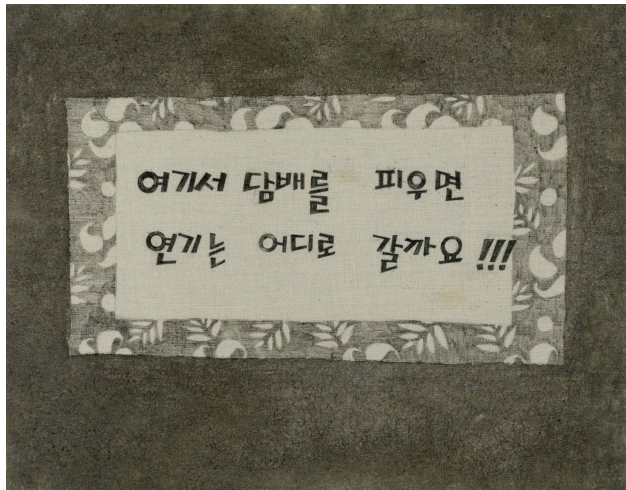 여기서 담배를 피우면
연기는 어디로 갈까요!!!